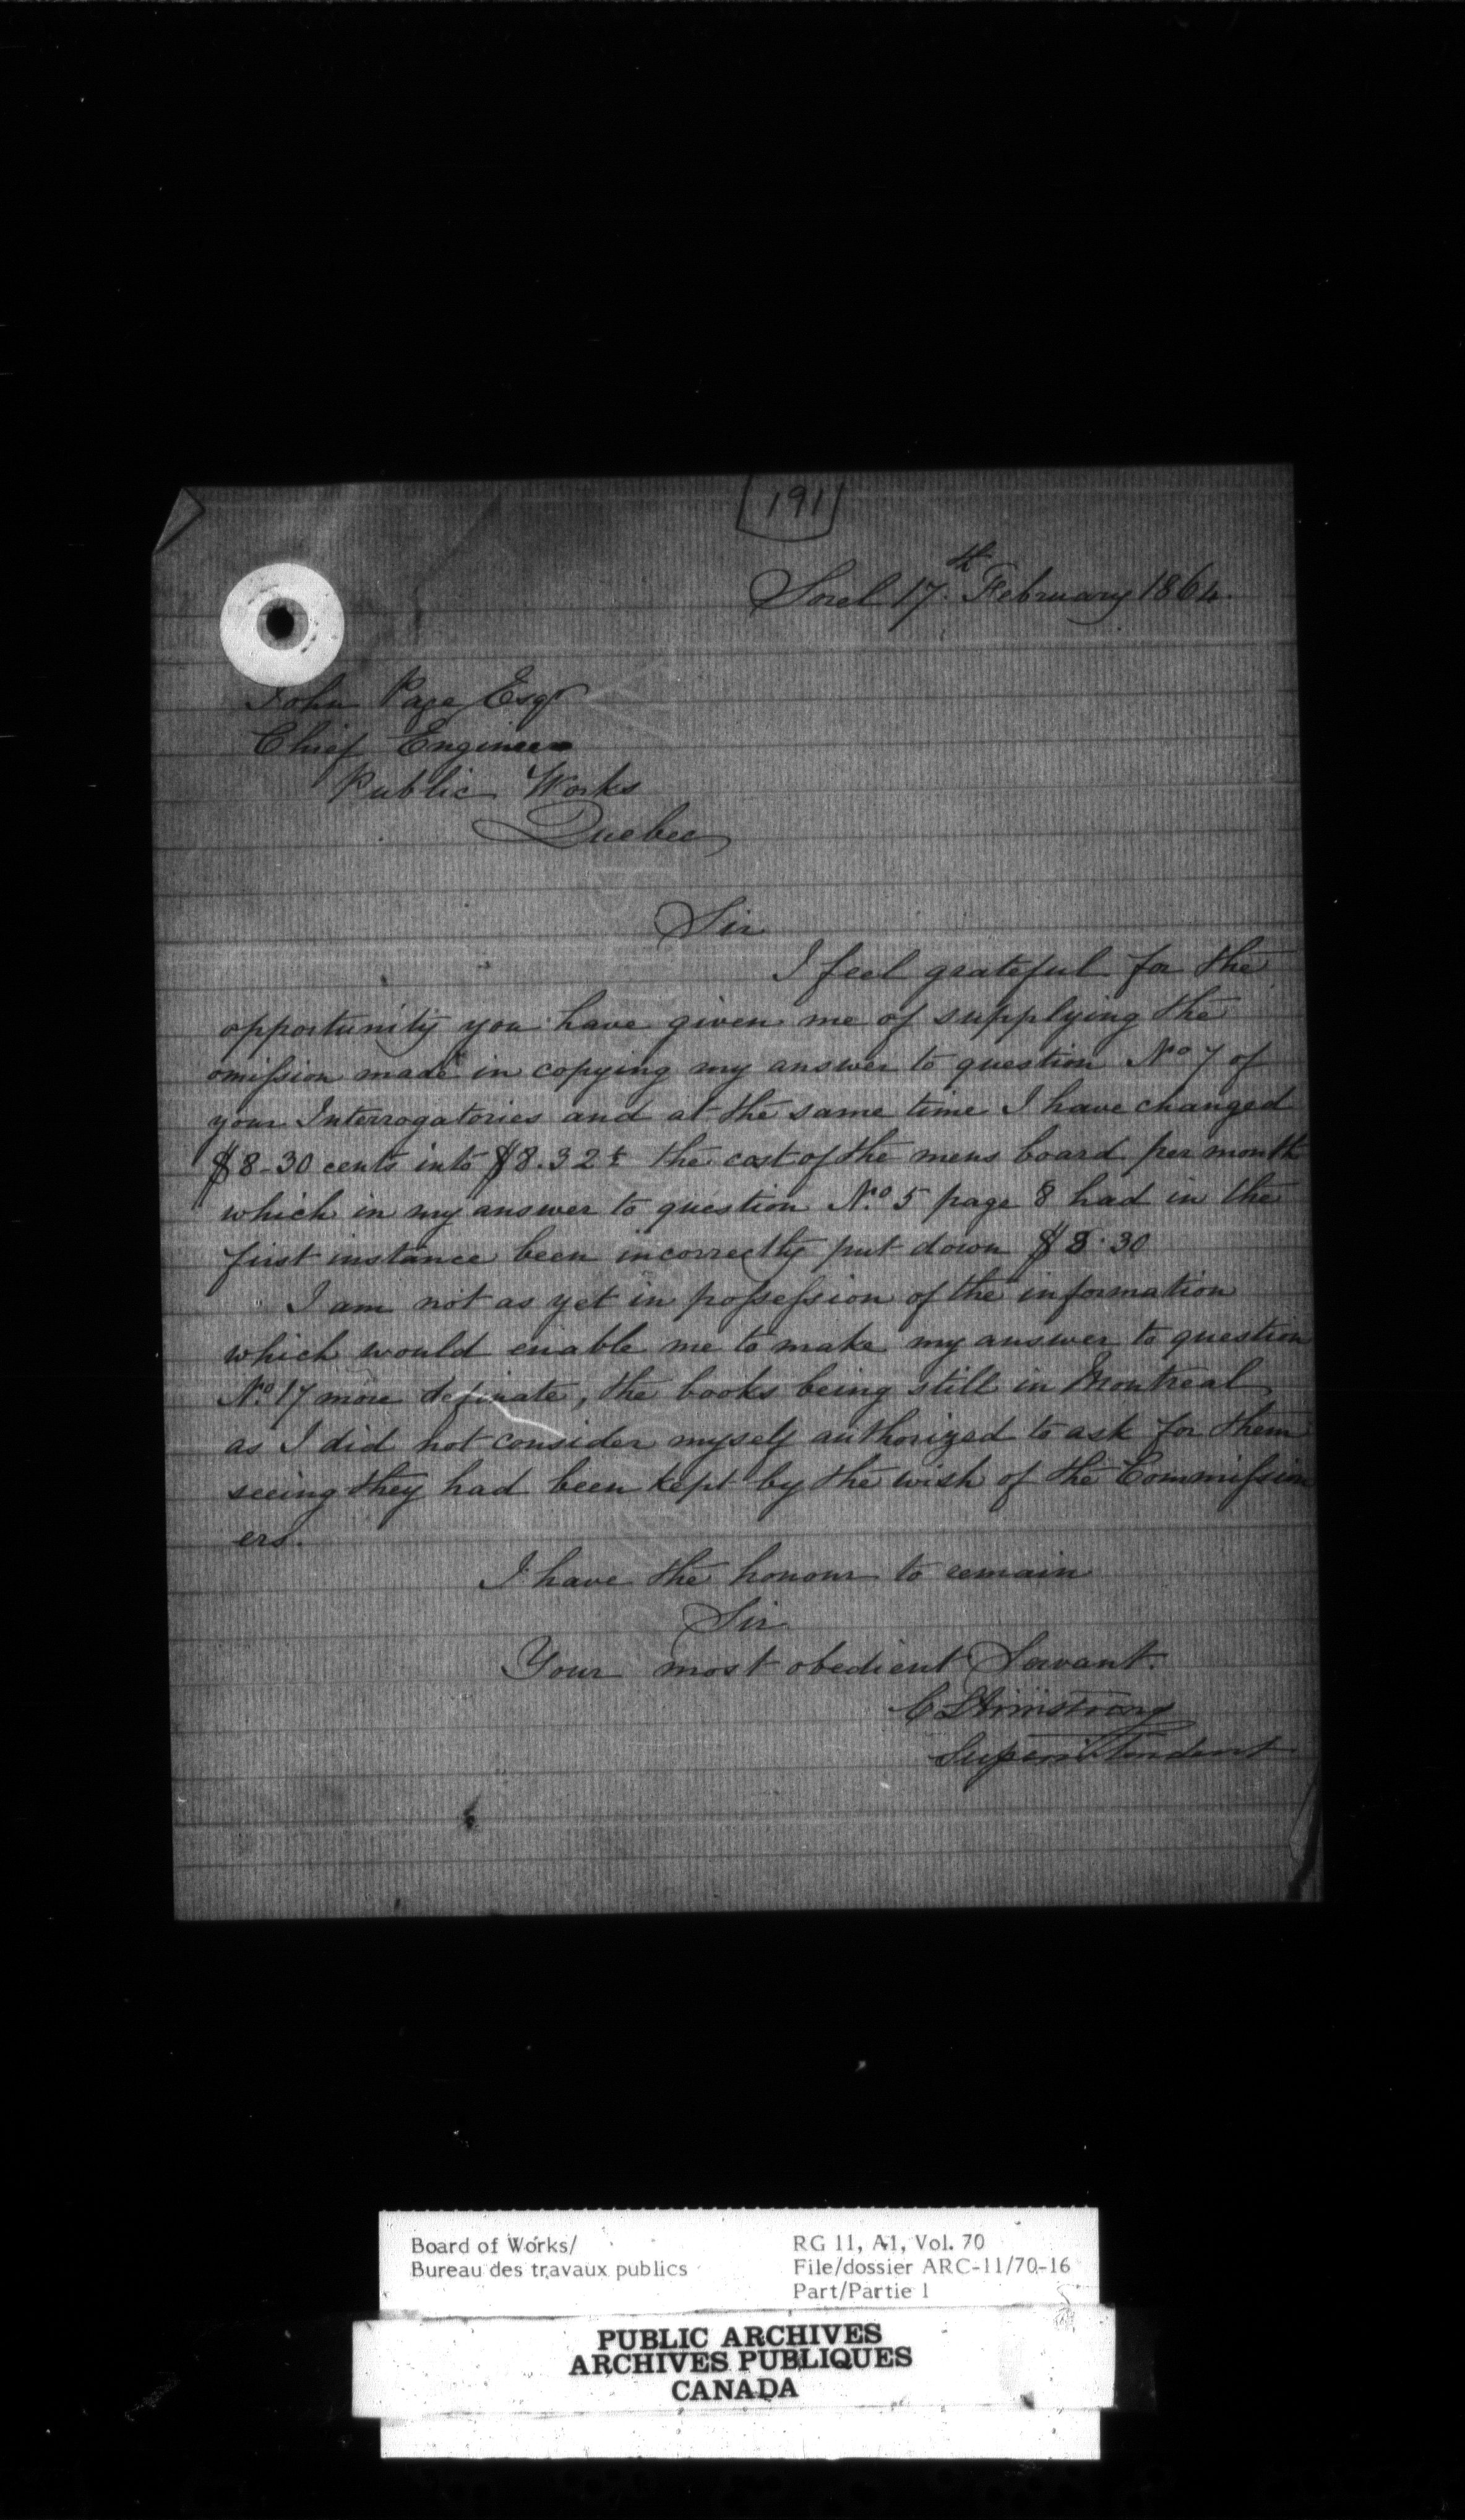 191
Sorel 17th February 1864.
John Page Esqr
Chief Engineer
Public Works
Quebec
Sir
I feel grateful for the
opportunity you have given me of supplying the
omission made in copying my answer to question No 7 of
your Interrogatories and at the same time I have changed
$8-30 cents into $8.32 the cost of the mens board per month
which in my answer to question No. 5 page 8 had in the
first instance been incorrectly put down $8.30
I am not as yet in possession of the information
which would enable me to make my answer to question
No. 17 more definate, the books being still in Montreal,
as I did not consider myself authorized to ask for them
seeing they had been kept by the wish of the Commission
ers.
I have the honour to remain
Sir
Your most obedient Servant.
C L Armstrong
Superintendent
Board of Works/
Bureau des travaux publics
RG 11, A1, Vol. 70
File/dossier ARC-11/70-16
Part/Partie 1
PUBLIC ARCHIVES
ARCHIVES PUBLIQUES
CANADA